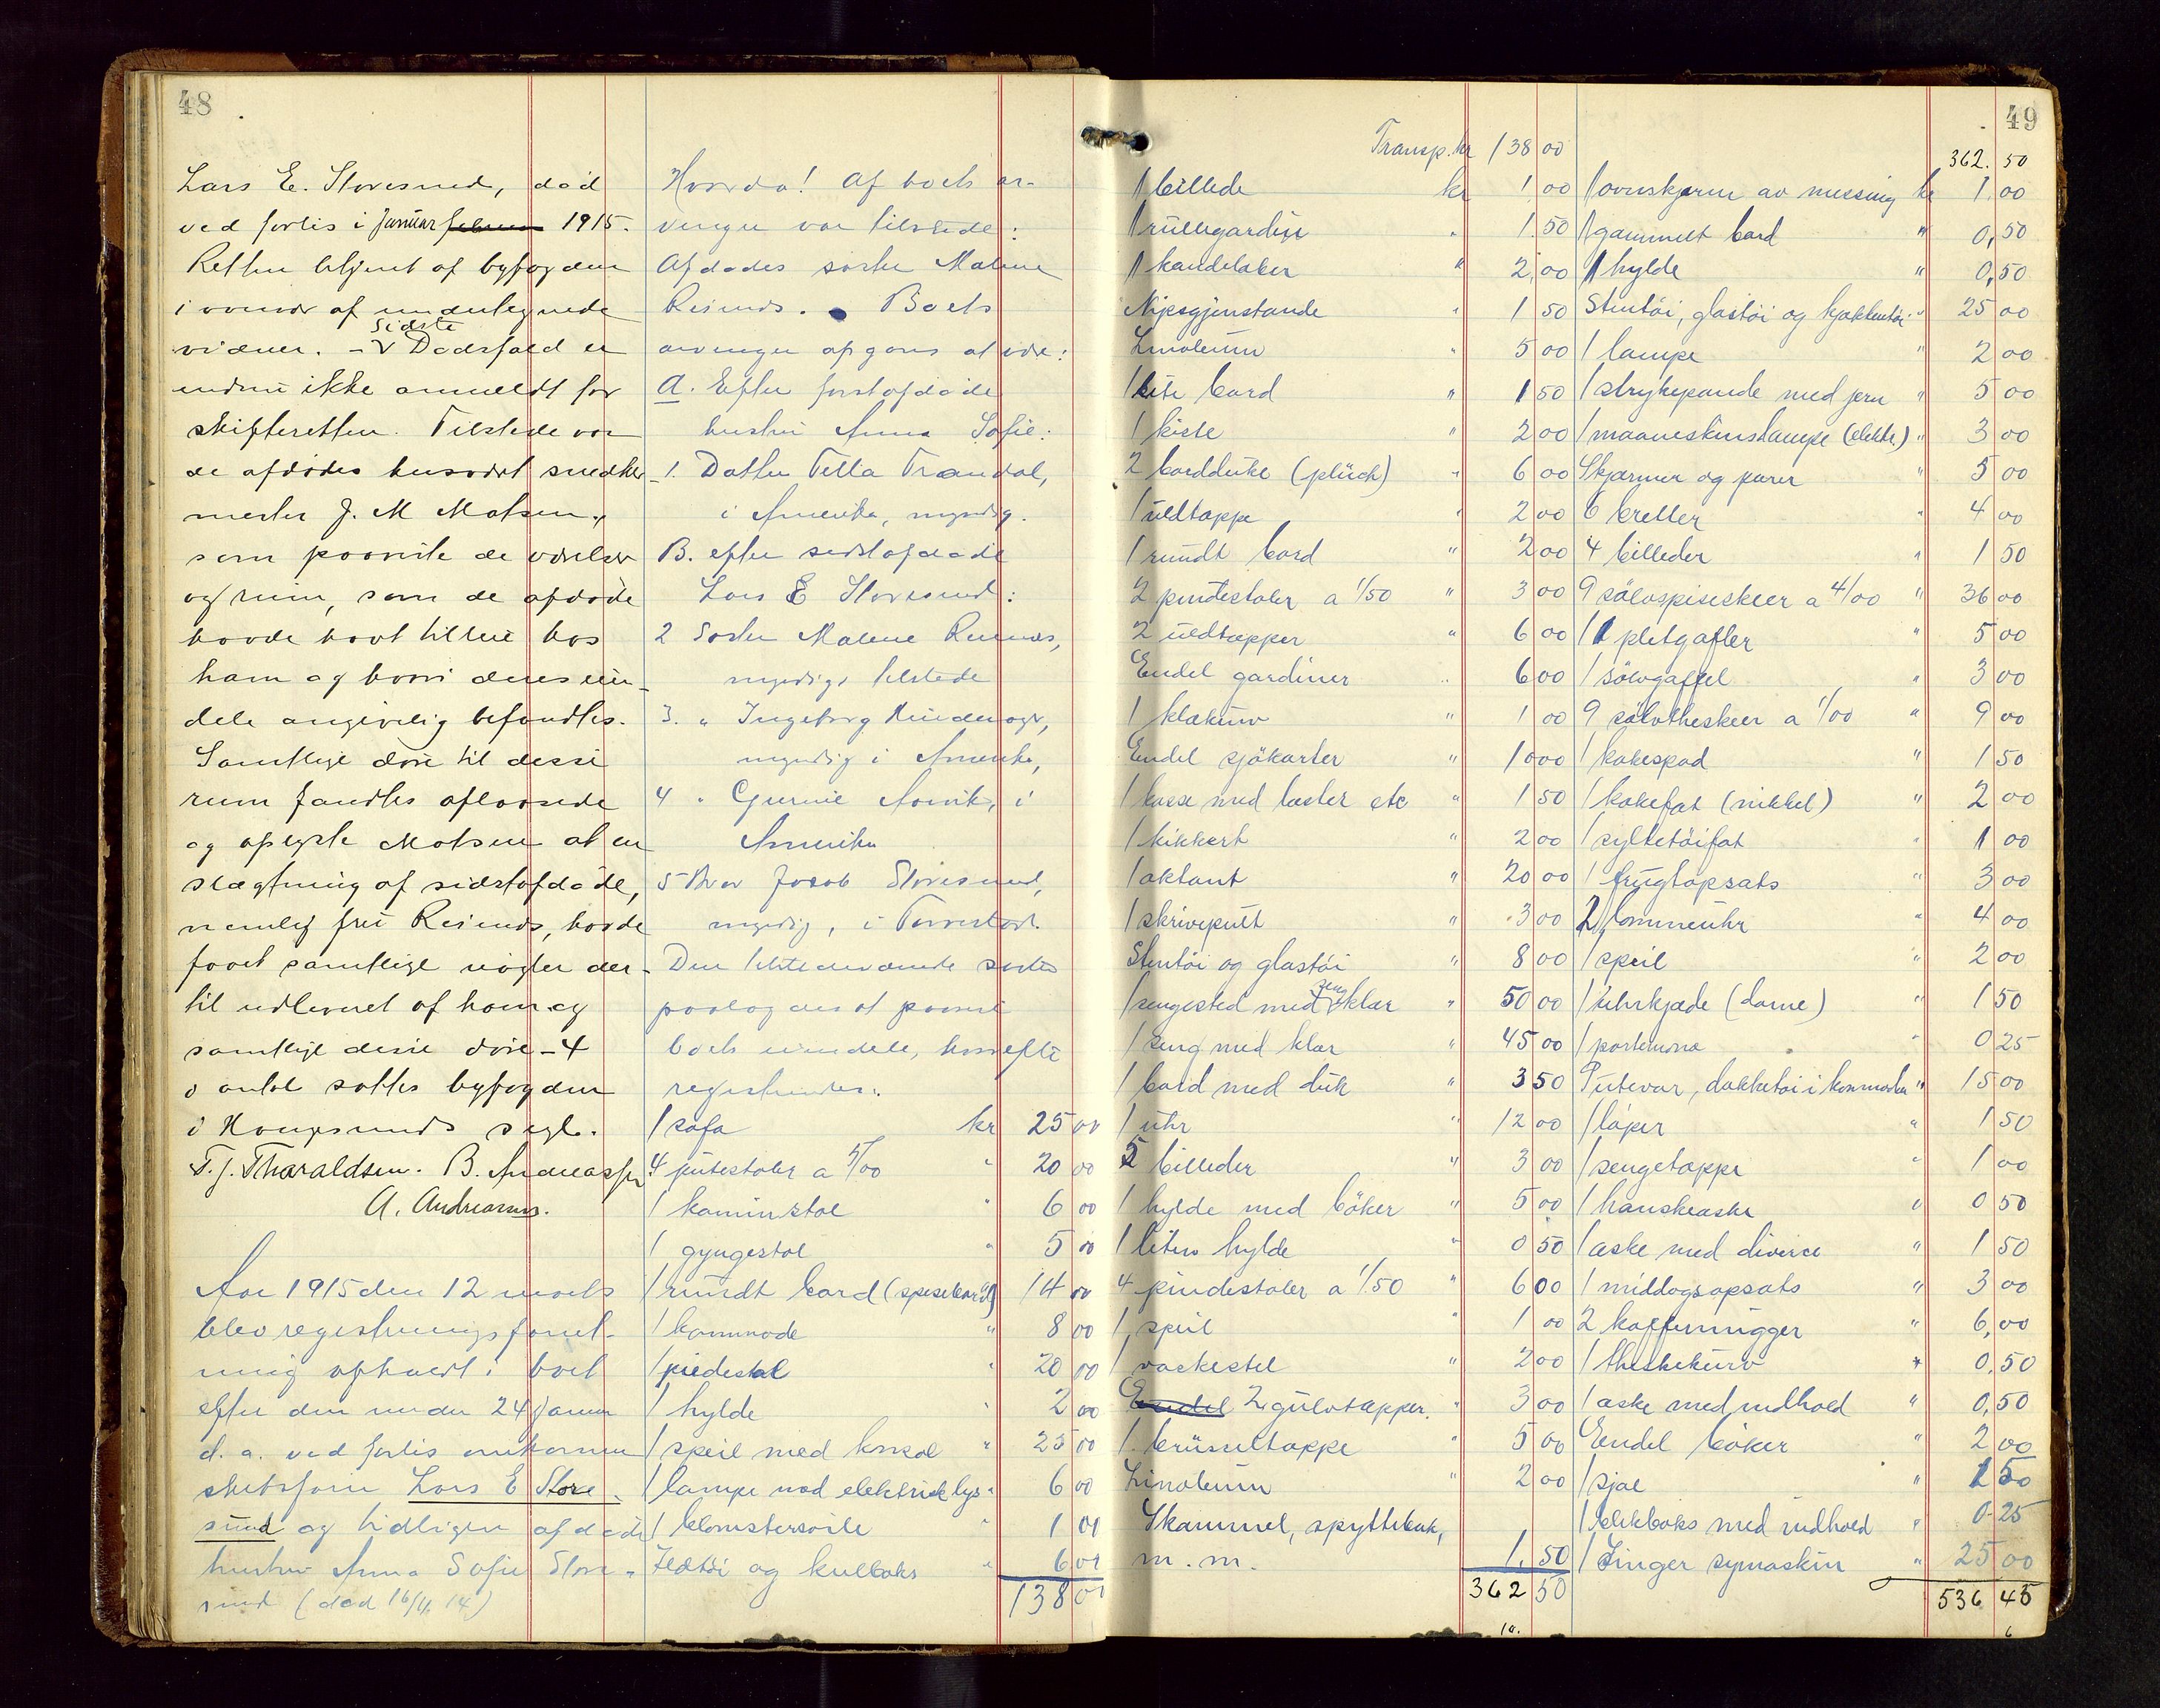 48
Lars E. Storesund, död
ved forlis i januar februar 1915.
Retten betjent af byfogden
i overvær af undertegnede
vidner. – Sidste Dødsfald er
endnu ikke anmeldt for
skifteretten. Tilstede var
de afdødes husvært snedker-
mester J. M. Matsen,
som paaviste de værelser
og rum, som de afdøde
havde havt tilleie hos
ham og hvori deres ein-
dele angivelig befandtes.
Samtlige døre til disse
rum fandtes aflaasede
og oplyste Matsen at en
slægtning af sidstafdøde,
nemlig fru Reinæs, havde
faaet samtlige nøgler der-
til udleveret af ham og
samtlige disse døre – 4
i antal sattes byfogden
i Haugesunds segl.
T. J. Tharaldsen. B. Andreassen
A. Andreasen.
Aar 1915 den 12 marts
blev registreringsforret-
ning afholdt i boet
efter den under 24 januar
d. a. ved forlis omkomne
skibsfører Lars E Store-
sund og tidligere afdøde
hustru Anna Sofie Store-
sund (død 16/4 14)
Hvorda! Af boets ar-
vinger var tilstede:
Afdødes søster Malene
Reinæs. Boets
arvinger opgaves at være:
A. Efter førstafdøde
hustru Anna Sofie:
1. Datter Tella Trandal,
i Amerika, myndig.
B. efter sidstafdøde
Lars E Storesund:
2 Søster Malene Reinæs,
myndig, tilstede
3. " Ingeborg
myndig i Amerika,
4 " i
Amerika
5 Bror Jacob Storesund,
myndig, i Torvestad.
Den tilstedeværende søster
paalagdes at paavise
boets eiendele, hvorefter
registreredes:
1 sofa kr 25 00
4 putestoler a 5/00 " 20 00
1 kaminstol " 6 00
1 gyngestol " 5 00
1 rundt bord (spisebord) 14 00
1 kommode " 8 00
1 piedestal " 20 00
1 hylde " 2 00
1 speil med konsol " 25 00
1 lampe med elektrisk lys " 6 00
1 blomstersøile " 1 00
Ildtöi og kulboks " 6 00
138 00
49
Transp. kr 138 00
1 billede kr 1,00
1 rullegardin " 1.50
1 kandelaber " 2,00
Nipsgjenstande " 1 50
Linoleum " 5 00
1 lite bord " 1 50
1 kiste " 2 00
2 bordduke (plüch) " 6 00
1 uldtæppe " 2 00
1 rundt bord " 2 00
2 pindestoler a 1/50 " 3 00
2 uldtæpper " 6 00
Endel gardiner " 6 00
1 klækurv " 1 00
Endel sjökarter " 10 00
1 kasse med laster etc " 1 50
1 kikkert " 2 00
1 oktant " 20 00
1 skrivepult " 3 00
Stentöi og glastöi " 8 00
1 sengested med sengklær " 50 00
1 seng med klær " 45 00
1 bord med duk " 3 50
1 uhr " 12 00
5 billeder " 3 00
1 hylde med böker " 5 00
1 liten hylde " 0 50
4 pindestoler a 1/50 " 6 00
1 speil " 1 00
1 vaskestel " 2 00
Endel 2 gulvtæpper. " 3 00
1 brüsseltæppe " 5 00
Linoleum " 2 00
Skammel, spyttebak,
m. m. 1.50
362 50
362. 50
1 ovnskjerm av messing kr 1.00
1 gammelt bord " 0,50
1 hylde " 0,50
Stentöi, glastöi og kjökkentöi " 25 00
1 lampe " 2 00
1 strykepande med jern " 5 00
1 maaneskinslampe (elektr.) " 3 00
Skjærmer og purer " 5 00
6 bretter " 4 00
4 billeder " 1 50
9 sölvspiseskeer a 4/00 " 36 00
11 pletgafler " 5 00
1 sölvgaffel " 3 00
9 sölvtheskeer a 1/00 " 9 00
1 kakespad " 1 50
1 kakefat (nikkel) " 2 00
1 syltetöifat " 1 00
1 frugtopsats " 3 00
2 lommeuhr " 4 00
1 speil " 2 00
1 uhrkjæde (dame) " 1 50
1 portemona " 0 25
Putevar, dækketöi i kommoden " 15 00
1 löper " 1 50
1 sengetæppe " 1 00
1 hanskeaske " 0 50
1 æske med diverse " 1 50
1 middagsopsats " 3 00
2 kaffemugger " 6,00
1 theskekurv " 0,50
1 æske med indhold " 0,50
Endel böker " 2 00
1 sjal " 1 50
1 blikboks med indhold " 0 25
1 Singer symaskin " 25 00
536 45